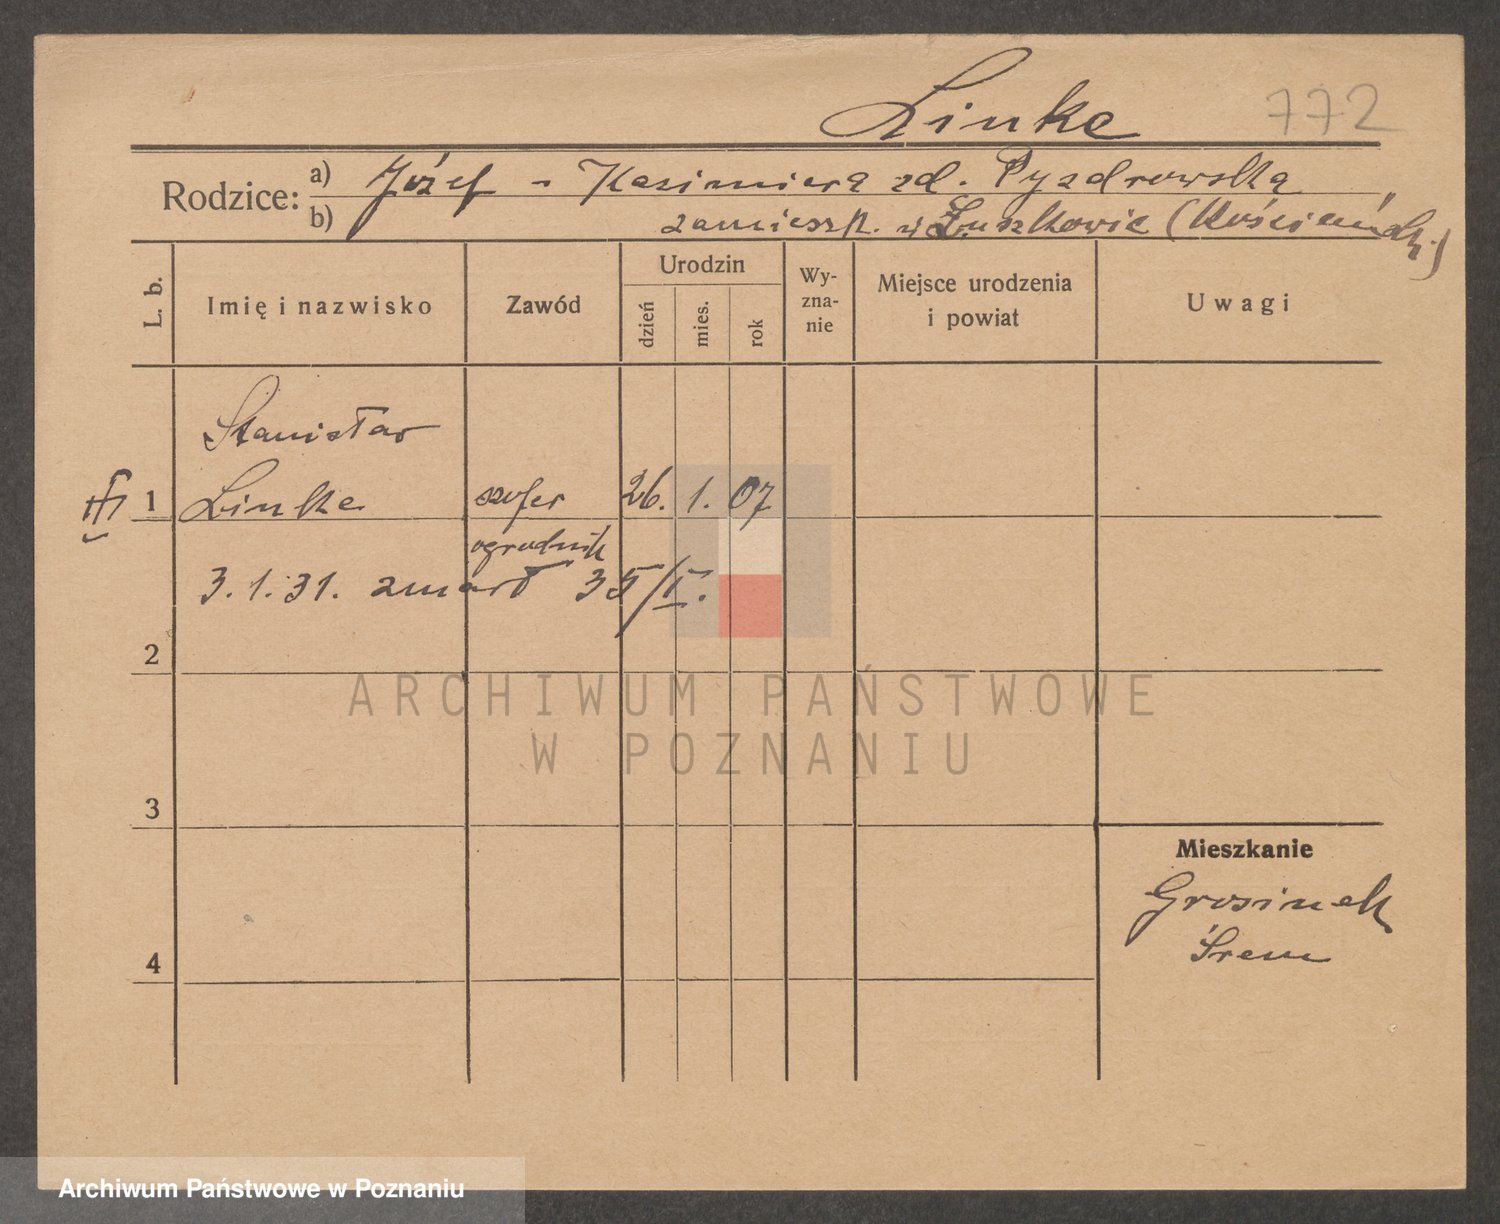 Linke 772
Rodzice: a) Józef - Kazimiera zd. Pyzdrowska
b) zamieszk. w Łuszkowie (Kościański)
L. b.
Imię i nazwisko
Zawód
Urodzin
dzień
mies.
rok
Wy-
zna-
nie
Miejsce urodzenia
i powiat
Uwagi
Stanisław
1 Linke szofer 26. 1. 07
ogrodnik
3.1.31. zmarł 35/I.
2
3
4
Mieszkanie
Grosinek
Śrem
ARCHIWUM PAŃSTWOWE
W POZNANIU
Archiwum Państwowe w Poznaniu